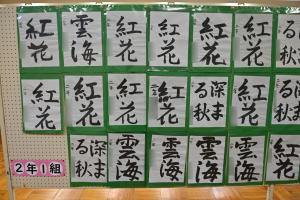 紅花
雲海
紅花
紅花
紅花
紅花
深ま
る秋
紅花
紅花
紅花
紅花
深ま
る秋
紅花
紅花
2年1組
深ま
る秋
雲海
雲海
雲海
雲海
紅花